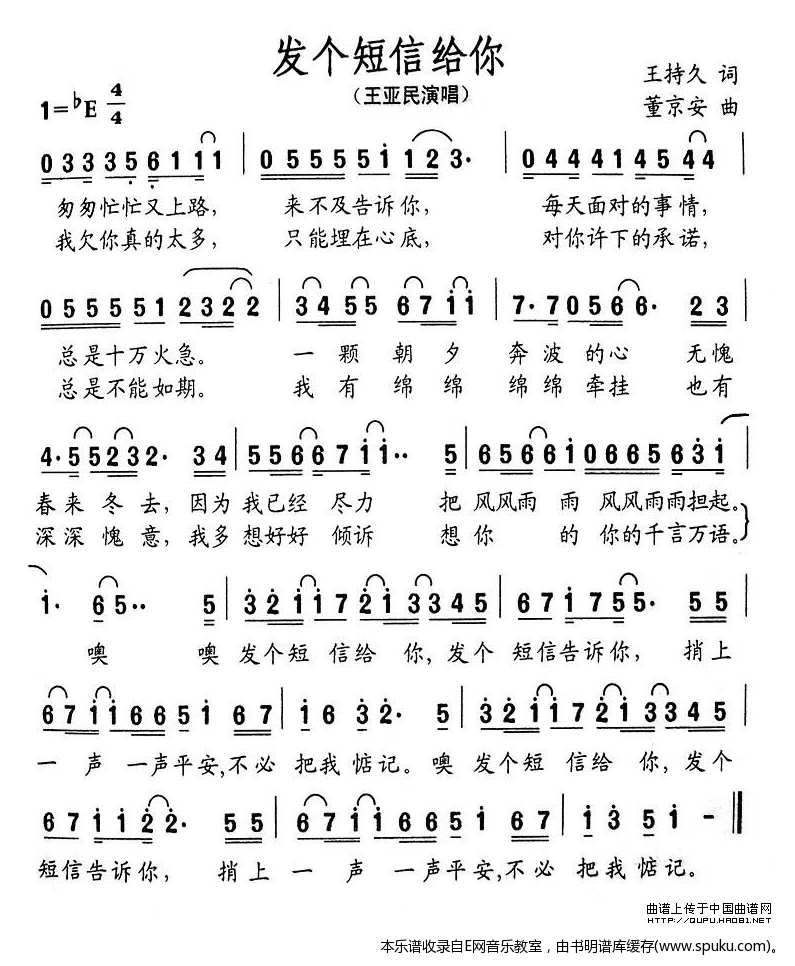 发个短信给你
(王亚民演唱)
王持久 词
董京安 曲
1=♭E 4/4
0 3 3 3 5 6 1 1 1 | 0 5 5 5 5 i 1 2 3· | 0 4 4 4 1 4 5 4 4
匆匆忙忙又上路, 来不及告诉你, 每天面对的事情,
我欠你真的太多, 只能埋在心底, 对你许下的承诺,
0 5 5 5 5 5 1 2 3 2 2 | 3 4 5 5 6 7 i i | 7· 7 0 5 6 6· 2 3
总是十万火急。 一颗朝夕奔波的心 无愧
总是不能如期。 我有绵绵绵绵牵挂 也有
4· 5 5 2 3 2· 3 4 | 5 5 6 6 7 i i·· 5 | 6 5 6 6 i 0 6 6 5 6 3 i
春来冬去, 因为我已经尽力 把风风雨雨风风雨雨担起。
深深愧意, 我多想好好倾诉 想你的你的千言万语。
i· 6 5·· 5 | 3 2 i i 7 2 i 3 3 4 5 | 6 7 i 7 5 5· 5 5
噢 噢发个短信给你, 发个短信告诉你, 捎上
6 7 i i 6 6 5 i 6 7 | i 6 3 2· 5 | 3 2 i i 7 2 i 3 3 4 5
一声一声平安, 不必把我惦记。噢发个短信给你, 发个
6 7 i i 2 2· 5 5 | 6 7 i i 6 6 5 i 6 7 | i 3 5 i -
短信告诉你, 捎上一声一声平安, 不必把我惦记。
曲谱上传于中国曲谱网
HTTP://QUPU.HAO81.NET
本乐谱收录自E网音乐教室，由书明谱库缓存(www.spuku.com)。